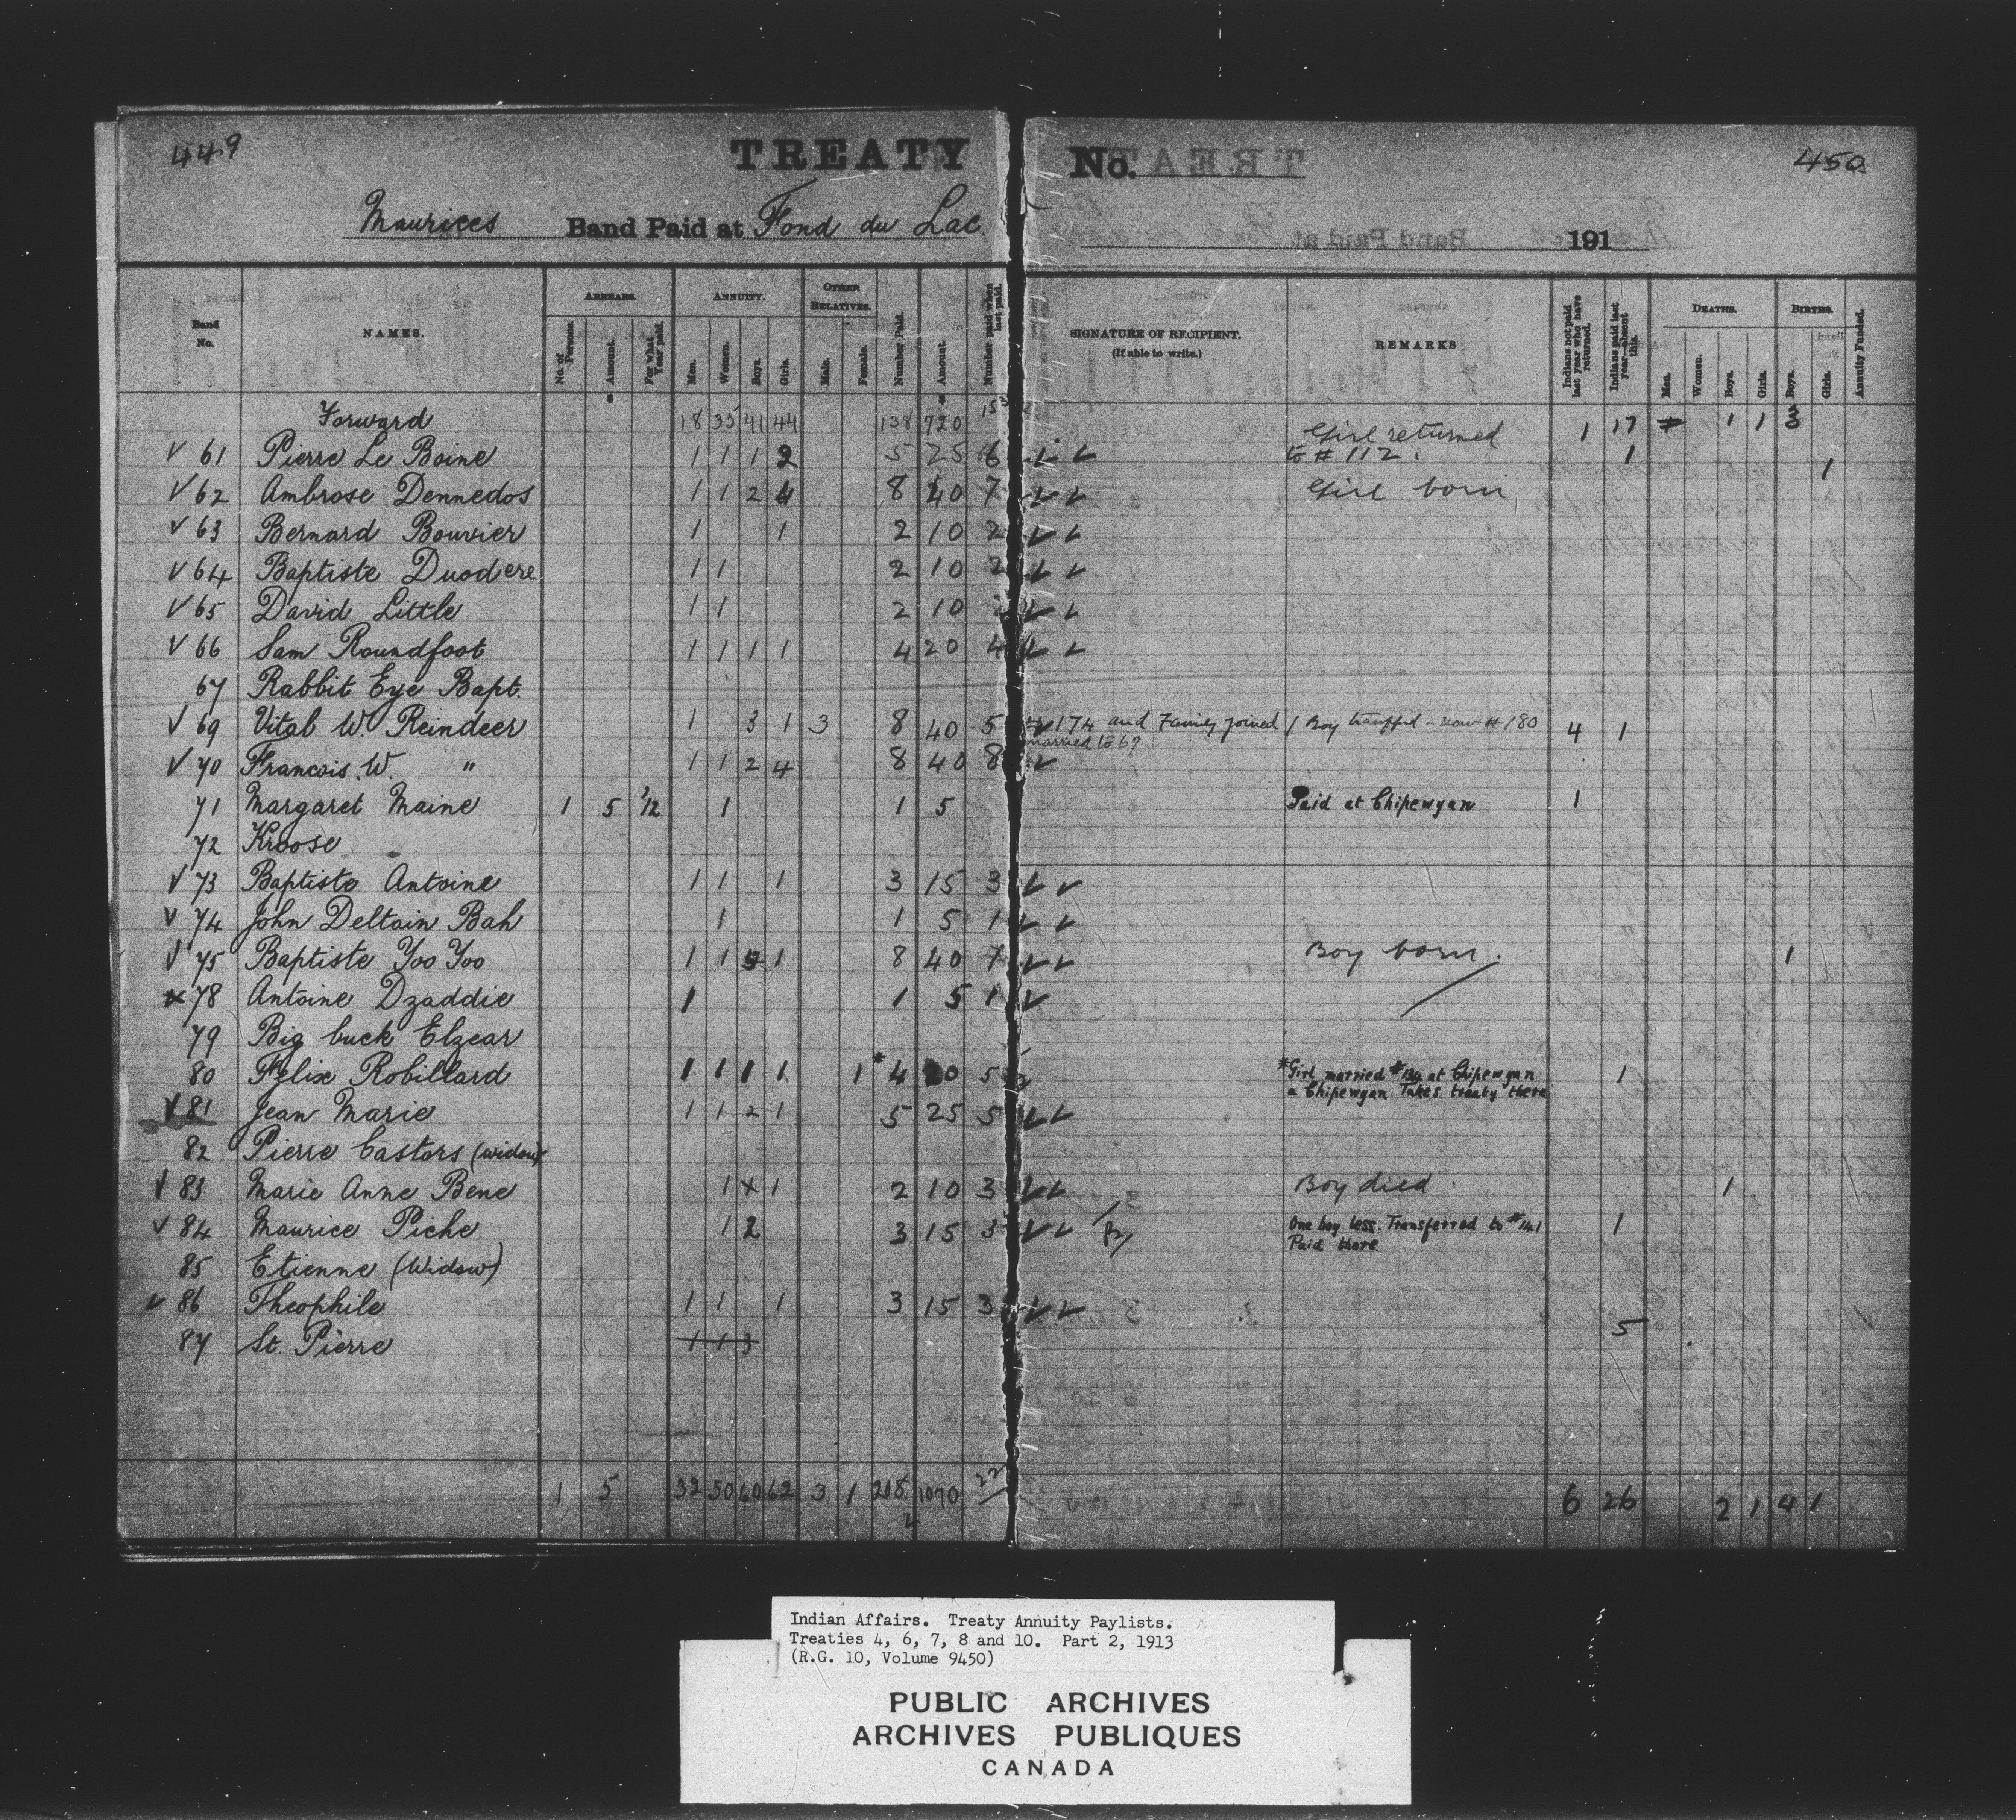 449
TREATY No.
450
Maurices Band Paid at Fond du Lac. 191
Band No. NAMES. ARREARS. No. of Persons. Amount. For what Year paid. ANNUITY. Men. Women. Boys. Girls. OTHER RELATIVES. Male. Female. Number Paid. Amount. Number paid when last paid. SIGNATURE OF RECIPIENT. (If able to write.) REMARKS Indians not paid last year who have returned. Indians paid last year—absent this. DEATHS. Men. Women. Boys. Girls. BIRTHS. Boys. Girls. Annuity Funded.
Forward 18 35 41 44 138 720 1 17 1 1 3
✓ 61 Pierre Le Boine 1 1 1 2 5 25 6 ✓ ✓ Girl returned to # 112. 1
✓ 62 Ambrose Dennedos 1 1 2 4 8 40 7 ✓ ✓ Girl born 1
✓ 63 Bernard Bouvier 1 1 2 10 2 ✓ ✓
✓ 64 Baptiste Duodere 1 1 2 10 2 ✓ ✓
✓ 65 David Little 1 1 2 10 ✓ ✓
✓ 66 Sam Roundfoot 1 1 1 1 4 20 4 ✓ ✓
67 Rabbit Eye Bapt.
✓ 69 Vital W. Reindeer 1 3 1 3 8 40 5 # 174 and Family joined married to 69 1 Boy transfd - now # 180 4 1
✓ 70 Francois W. " 1 1 2 4 8 40 8 ✓
71 Margaret Maine 1 5 '12 1 1 5 Paid at Chipewyan 1
72 Kroose
✓ 73 Baptiste Antoine 1 1 1 3 15 3 ✓ ✓
✓ 74 John Deltain Bah 1 1 5 1 ✓ ✓
✓ 75 Baptiste Yoo Yoo 1 1 5 1 8 40 7 ✓ ✓ Boy born. 1
x 78 Antoine Dzaddie 1 1 5 1 ✓
79 Big buck Elzear
80 Felix Robillard 1 1 1 1 1 * 4 20 5 *Girl married # at Chipewyan a Chipewyan Takes treaty there 1
✓ 81 Jean Marie 1 1 2 1 5 25 5 ✓ ✓
82 Pierre Castors (widow)
✓ 83 Marie Anne Bene 1 x 1 2 10 3 ✓ ✓ Boy died. 1
✓ 84 Maurice Piche 1 2 3 15 3 ✓ ✓ One boy less. Transferred to #141 Paid there 1
85 Etienne (Widow)
✓ 86 Theophile 1 1 1 3 15 3 ✓ ✓
87 St. Pierre 1 1 3 5
1 5 32 50 60 62 3 1 208 1070 6 26 2 1 4 1
Indian Affairs. Treaty Annuity Paylists.
Treaties 4, 6, 7, 8 and 10. Part 2, 1913
(R.G. 10, Volume 9450)
PUBLIC ARCHIVES
ARCHIVES PUBLIQUES
CANADA